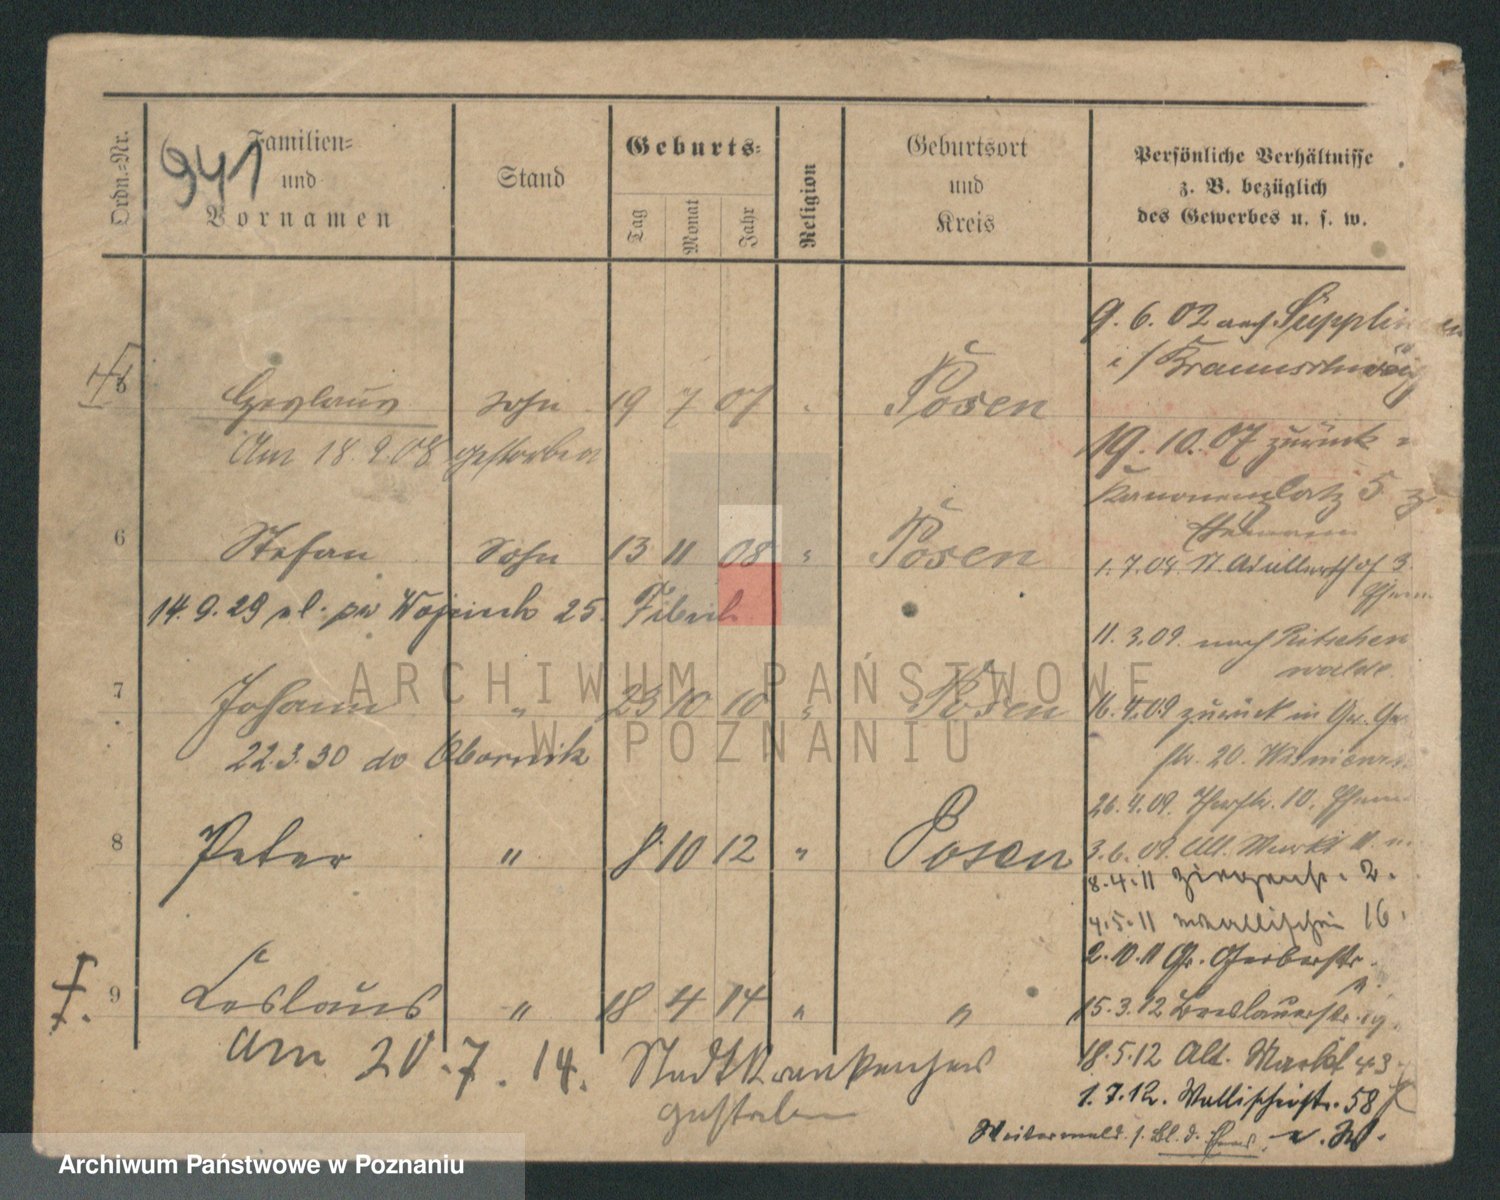 Ordn.-Nr.
941
Familien-
und
Vornamen
Stand
Geburts-
Tag
Monat
Jahr
Religion
Geburtsort
und
Kreis
Persönliche Verhältnisse
z. B. bezüglich
des Gewerbes u. s. w.
5
Sohn 19 7 07 Posen
Am 18.9.08 gestorben
6 Stefan Sohn 13 11 08 " Posen
14.9.29 25
7 Johann " 23 10 10 " Posen
22.3.30 do Obornik
8 Peter " 8 10 12 " Posen
9 Ceslaus " 18 4 14 " "
am 20.7.14. Stadtkrankenhaus
gestorben
9.6.02 nach Süpplin
i/Braunschweig
19.10.07 zurück
Kanonenplatz 5
1.7.08
11.3.09 nach Ritschen
walde
16.4.09 zurück in Gr. Ger
str. 20.
26.4.09. 10.
3.6.09 Alt. Markt
8.4.11 2.
4.5.11 Wallischei 16.
2.10.11 Gr. Gerberstr.
15.3.12 Breslauerstr. 19.
18.5.12 Alt. Markt 43
1.7.12. Wallischeistr. 58
ARCHIWUM PAŃSTWOWE
W POZNANIU
Archiwum Państwowe w Poznaniu